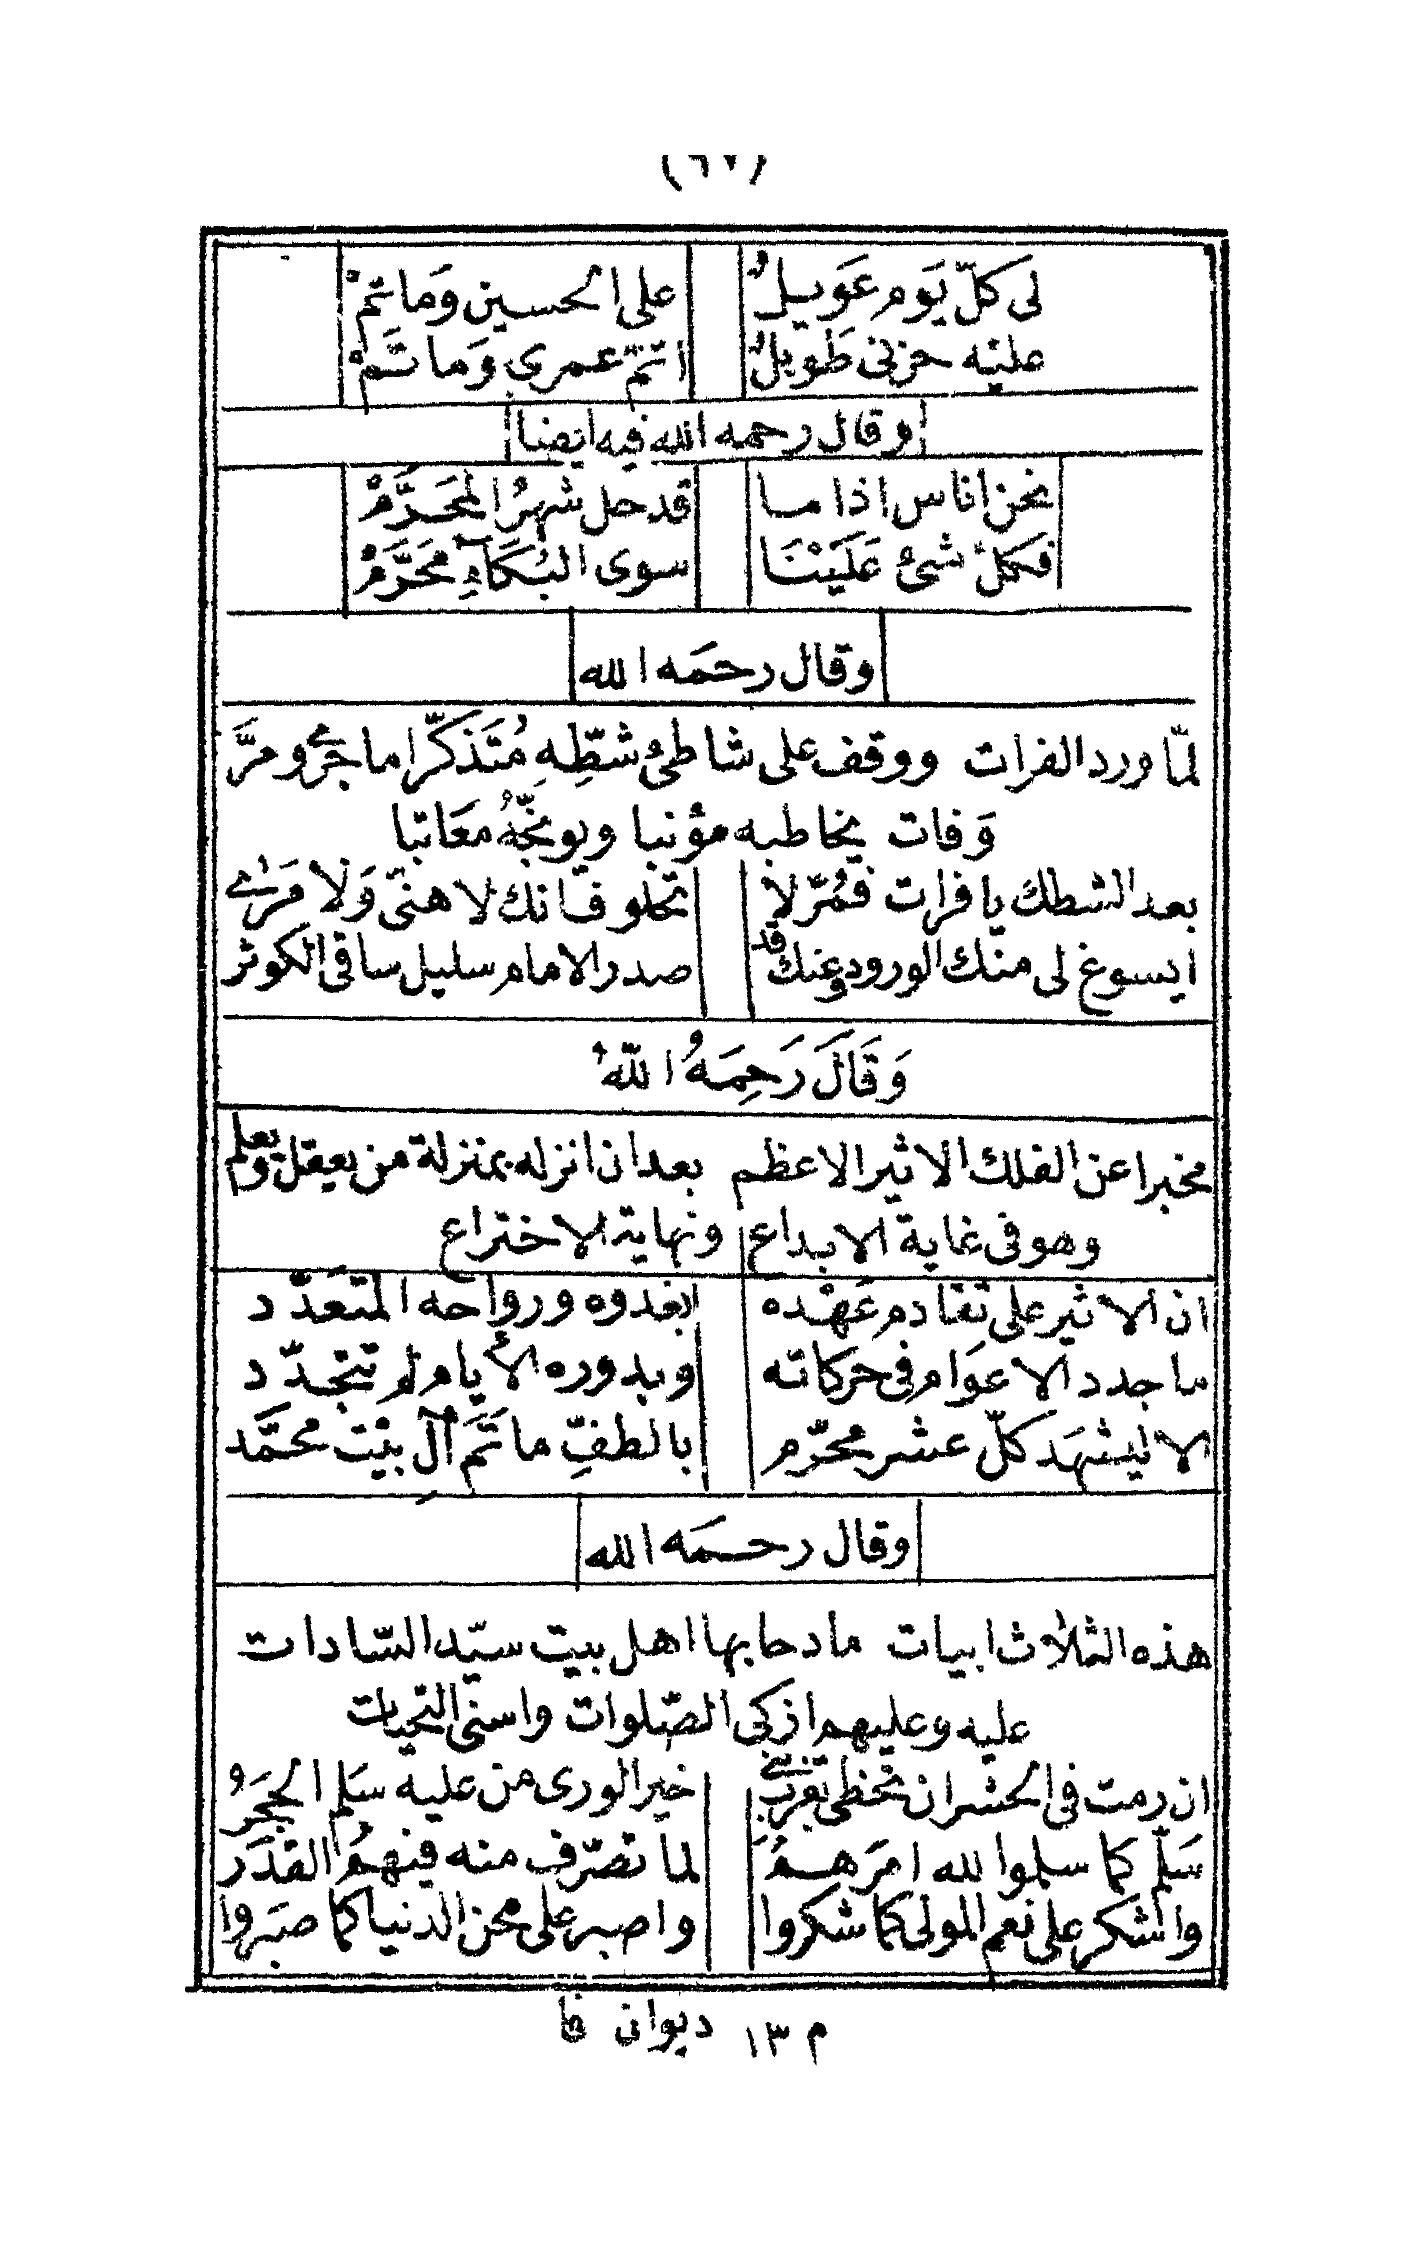 لى كلّ يَوم عَوَيـلُ على الحسين وَماتم
عليه حزنى طَويلُ اتم عمرى وَما تَمْ
وقال رحمه الله فيه ايضا
نحن اناس اذا مـا قد حل شهرُ المحَرَّمْ
فكلُّ شئ عَلَيْنَا سوى البُكَآءِ مُحَرَّمْ
وقال رحمَه الله
لمّا ورد الفرات ووقف على شاطئ شطِّهِ مُتَذكّرا ما جرى ومرَّ
وَفات يخاطبه مؤنبا ويوبخّهُ معَاتبا
بعد الشطك يا فرات فمُرّ لا تحلو فانك لا هنىّ وَلا مَرى
ايسوغ لى منك الورود وعنك قد صدر الامام سليل ساقى الكوثر
وَقَالَ رَحِمَهُ اللّهُ
مخبرا عن الفلك الاثير الاعظم بعد ان انزله بمنزلة من يعقل ويعلم
وهو فى غاية الابداع ونهاية الاختراع
ان الاثير على تقادم عَهْده بغدوه ورواحه المتعَدّد
ما جدد الاعوَام فى حركاته وبدوره الأيام لم تتجدّد
الا ليشهَد كلّ عشر محرّم بالطفِّ ماتَمَ آلِ بيْت محمَّد
وقال رحمَه الله
هذه الثلاث ابيات مادحا بها اهل بيت سيّد السّادات
عليه وعليهم ازكى الصّلوات واسنى التحيات
ان رمت فى الحشر ان تحظى بقرب خير الورى من عليه سَلم الحجَرُ
سَلّم كما سلموا لله امرَهـمُ لما تصرّف منه فيهمُ القدَر
واشكر على نعم المولى كما شكروا واصبر على محن الدنيا كما صبَروا
م ١٣ ديوان فا